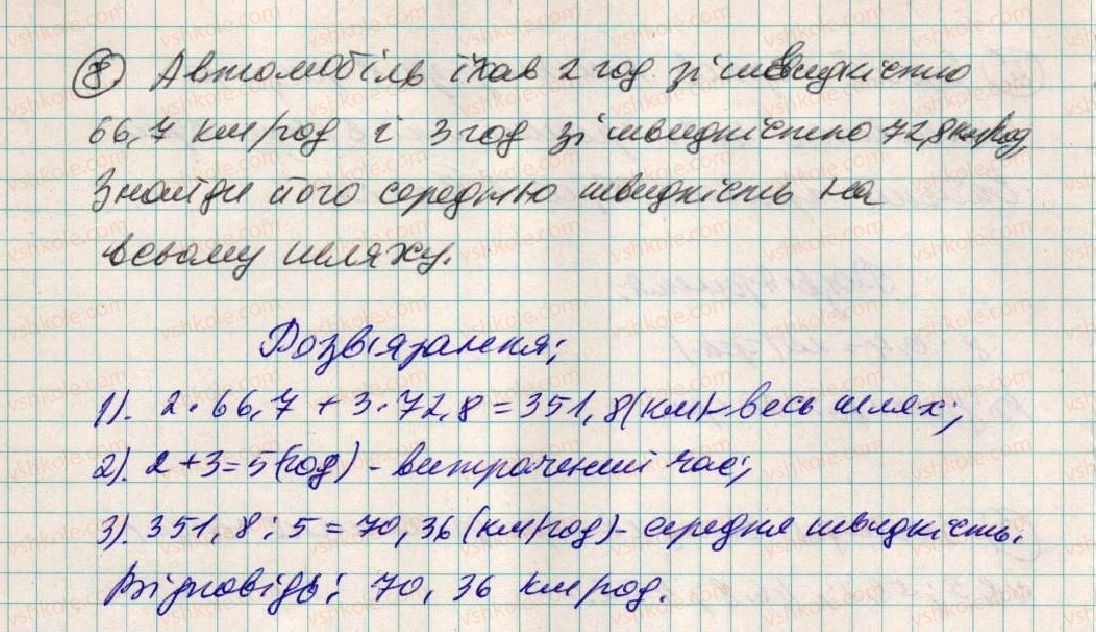 8 Автомобіль їхав 2 год зі швидкістю
66,7 км/год і 3 год зі швидкістю 72,8 км/год,
Знайди його середню швидкість на
всьому шляху.
Розв'язання;
1). 2·66,7 + 3·72,8 = 351,8 (км) - весь шлях;
2). 2+3=5 (год) - витрачений час;
3). 351,8 : 5 = 70,36 (км/год) - середня швидкість.
Відповідь: 70,36 км/год.